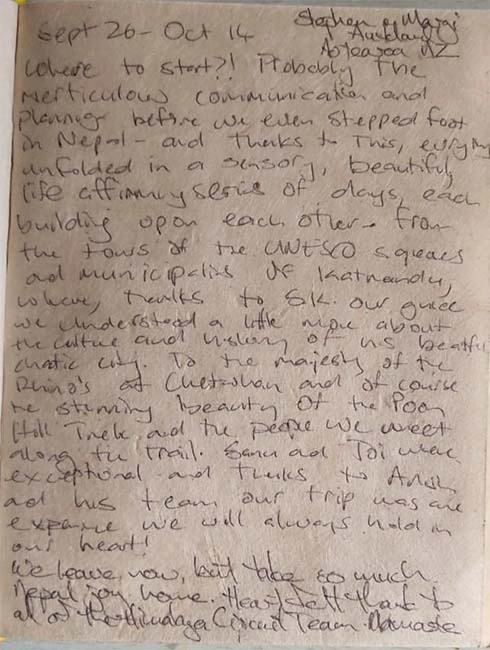 Sept 26 - Oct 14
Stephen & Margi
Auckland
Aotearoa NZ
Where to start?! Probably the
merticulous communication and
planning before we even stepped foot
in Nepal - and thanks to this, everything
unfolded in a sensory, beautiful,
life affirming series of days, each
building upon each other - from
the tours of the UNESCO squares
and municipalities of Kathmandu,
where, thanks to S.K. our guide
we understood a little more about
the culture and history of this beautiful
chaotic city. To the majesty of the
Rhino's at Chetwhan and of course
the stunning beauty of the Poon
Hill Trek and the people we meet
along the trail. and Joi were
exceptional and thanks to
and his team our trip was an
experience we will always hold in
our heart!
We leave now, but take so much
Nepal joy home. Heartfelt thanks to
all of the Himalaya Circuit Team. Namaste